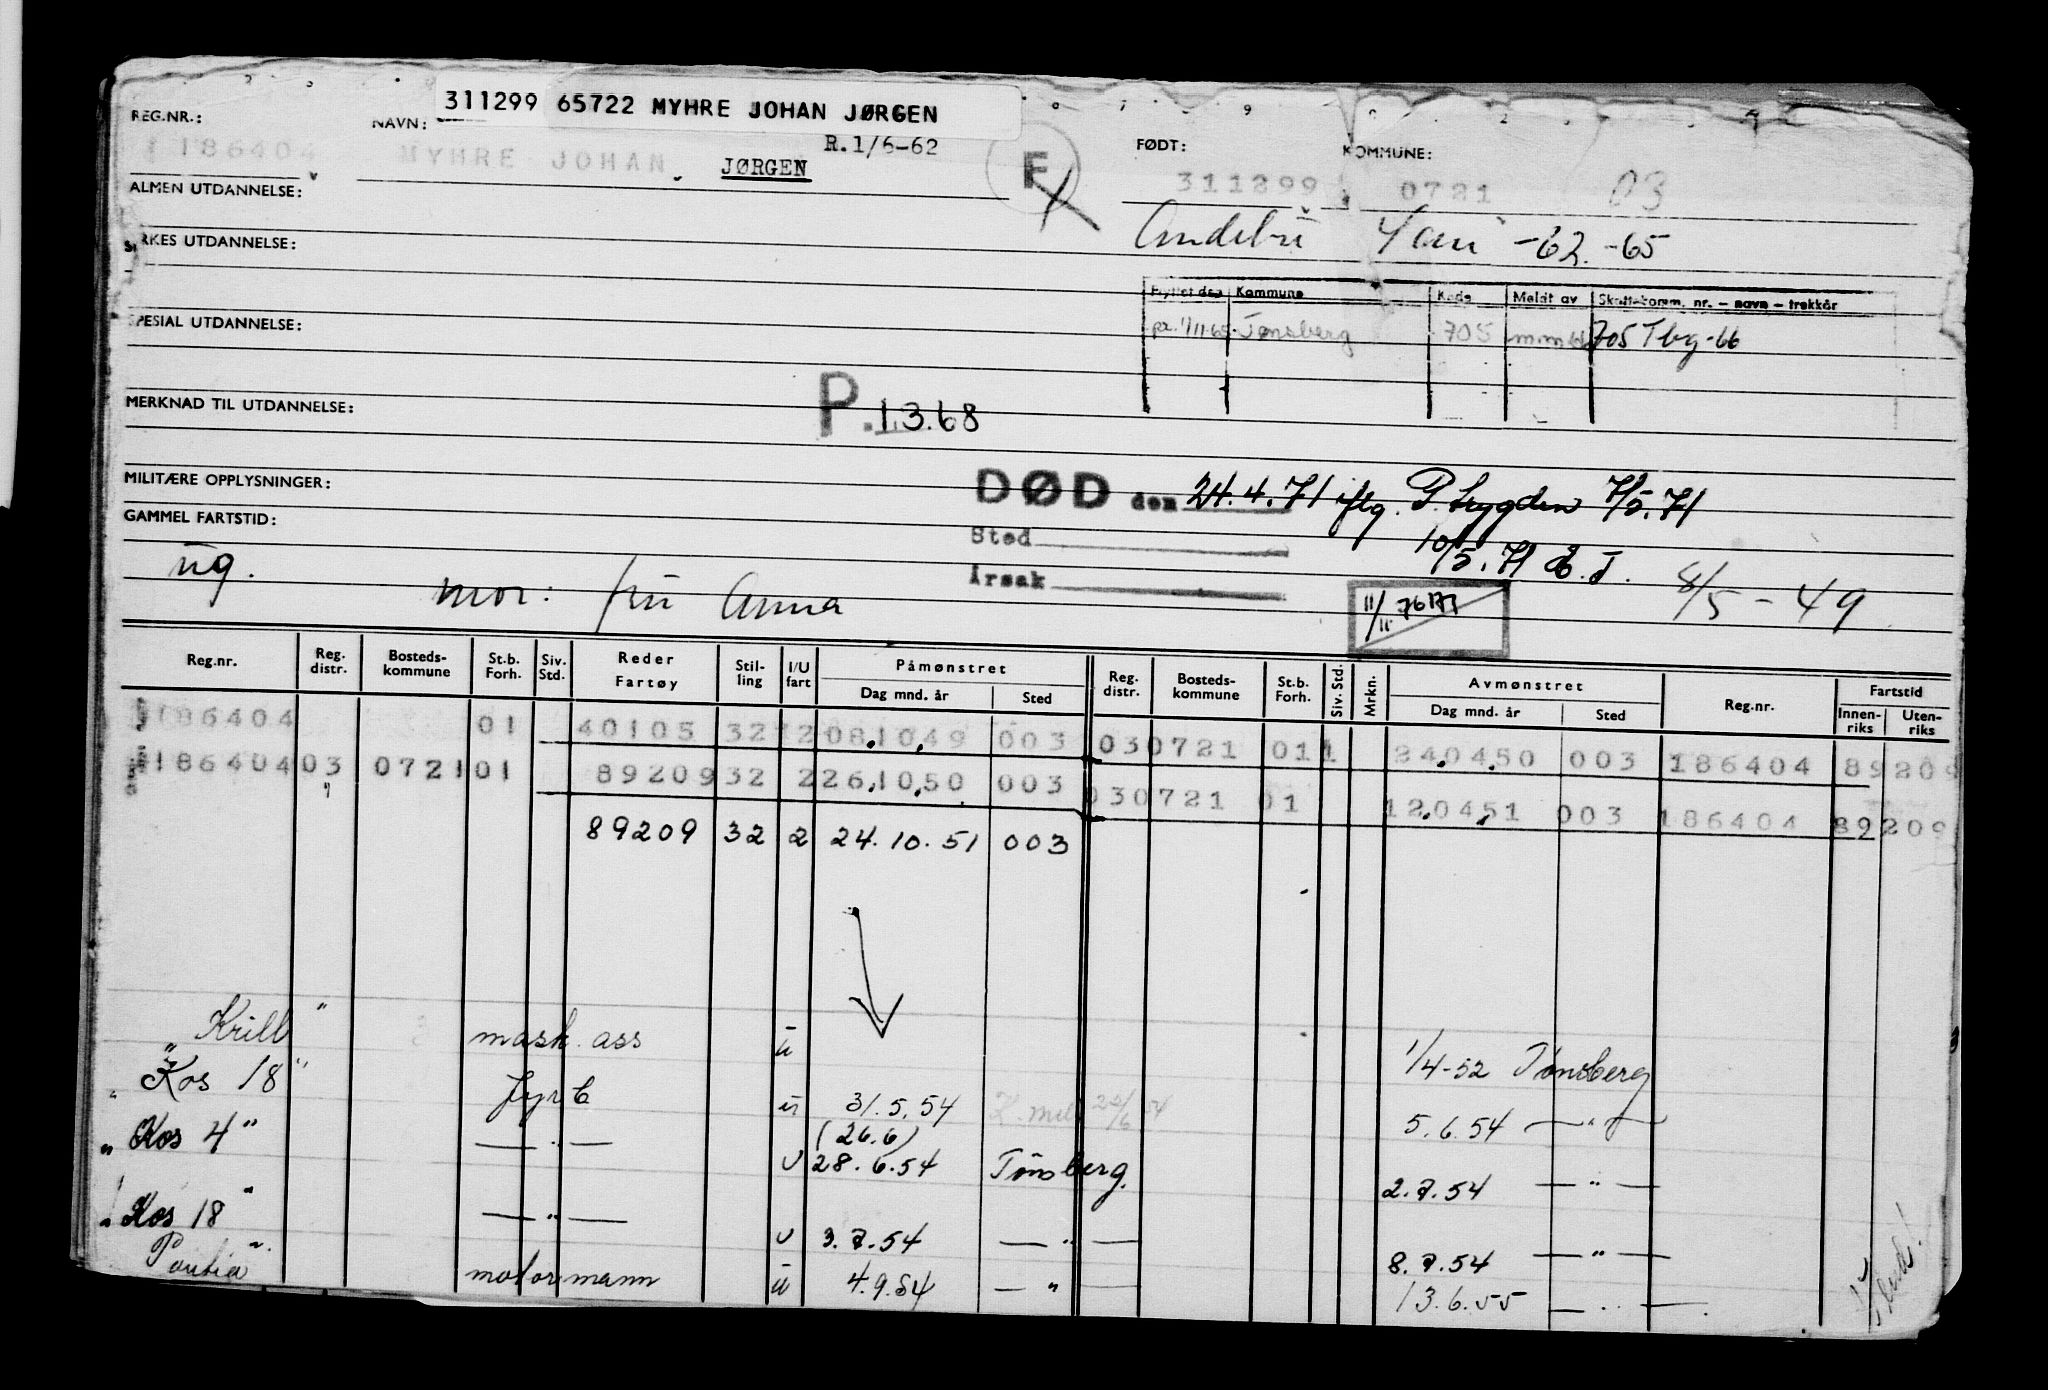 311299 65722 MYHRE JOHAN JØRGEN
REG.NR.: NAVN: R.1/6-62 FØDT: KOMMUNE:
186404 MYHRE JOHAN JØRGEN F 311299 0721 03
ALMEN UTDANNELSE:
Andebu -62.-65
YRKES UTDANNELSE:
Flyttet den Kommune Kode Meldt av Skattekomm. nr. - navn - trekkår
Tønsberg 705 705 Tbg-66
SPESIAL UTDANNELSE:
P.1.3.68
MERKNAD TIL UTDANNELSE:
MILITÆRE OPPLYSNINGER:
DØD den 24.4.71 iflg. P.trygden 7/5.71
GAMMEL FARTSTID:
Sted 10/5.71
ug. mor: fru Anna
Årsak 8/5-49
Reg.nr. Reg. distr. Bosteds-kommune St.b. Forh. Siv. Std. Reder Fartøy Stil-ling I/U fart Påmønstret Dag mnd. år Sted Reg. distr. Bosteds-kommune St.b. Forh. Siv. Std. Mrkn. Avmønstret Dag mnd. år Sted Reg.nr. Fartstid Innen-riks Uten-riks
186404 01 40105 32 2 08.10.49 003 03 0721 01 1 24.04.50 003 186404 89209
186404 03 0721 01 89209 32 2 26.10.50 003 03 0721 01 12.04.51 003 186404 89209
89209 32 2 24.10.51 003
"Krill" mask. ass u 1/4-52 Tønsberg
"Kos 18" fyrb u 31.5.54 5.6.54 — " —
(26.6)
"Kos 4" — " — u 28.6.54 Tønsberg. 2.7.54 — " —
"Kos 18" — " — u 3.7.54 — " — 8.7.54 — " —
motormann u 4.9.54 — " — 13.6.55 — " —